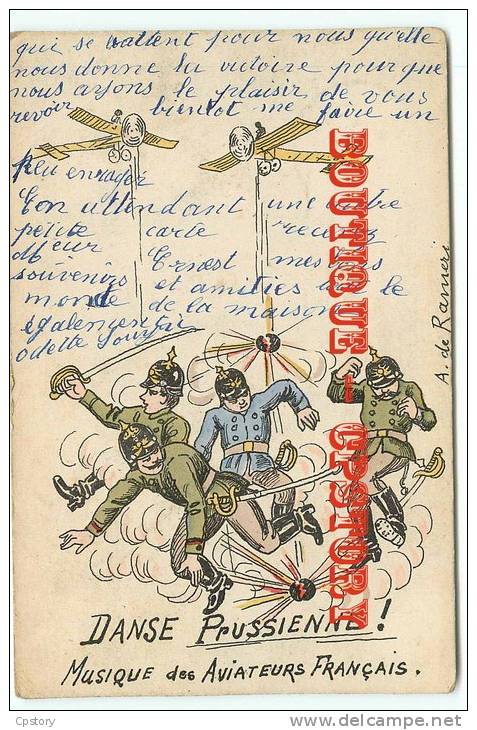 qui se battent pour nous qu'elle
nous donne la victoire pour que
nous ayons le plaisir de vous
revoir bientot me faire un
peu enrager
Eon attendant une autre
petite carte recevez
Meur Ernest mes
souvenirs et amitiés le
monde de la maison
égalemen
odette
A. de Ranieri
BOUTIQUE - CPSTORY
DANSE PRUSSIENNE !
MUSIQUE des AVIATEURS FRANÇAIS.
Cpstory
www.delcampe.net